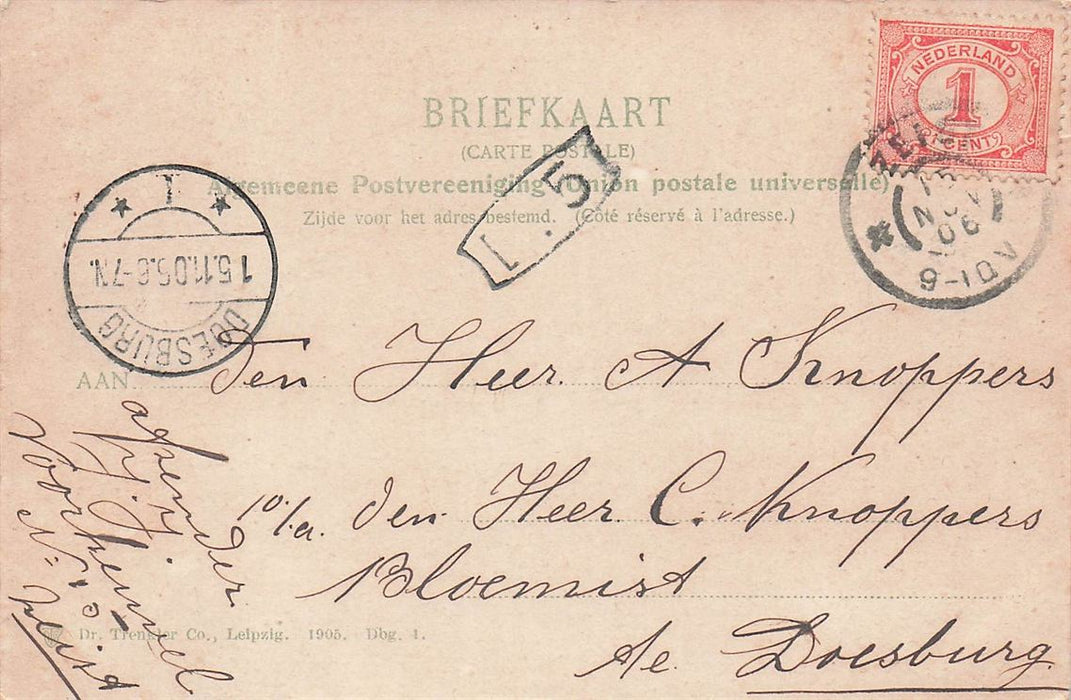 BRIEFKAART
(CARTE POSTALE)
Algemeene Postvereeniging (Union postale universelle)
Zijde voor het adres bestemd. (Côté réservé à l'adresse.)
NEDERLAND
1
CENT
ZEIST
NOV
06
9-10V
1.5
1
15.11.06.6-7N.
DOESBURG
AAN
den Heer A Knoppers
p/a. den Heer C. Knoppers
Bloemist
te Doesburg
afzender
Voorheuvel
Nº
Zeist
Dr. Trenkler Co., Leipzig. 1905. Dbg. 1.